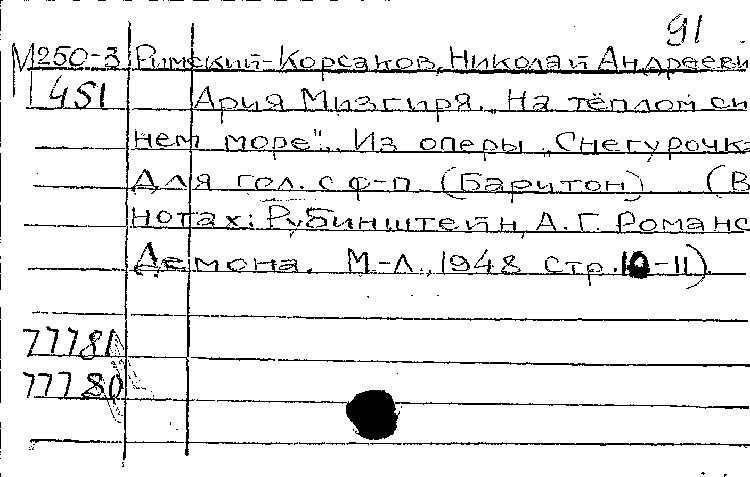 91
М250-3 Римский-Корсаков, Николай Андрееви
451 Ария Мизгиря „На тёплом си
нем море". Из оперы „Снегурочка
Для гол. с ф-п (Баритон) (В
нотах: Рубинштейн, А.Г. Романс
Демона. М-Л., 1948 стр. 10-11)
77781
77780